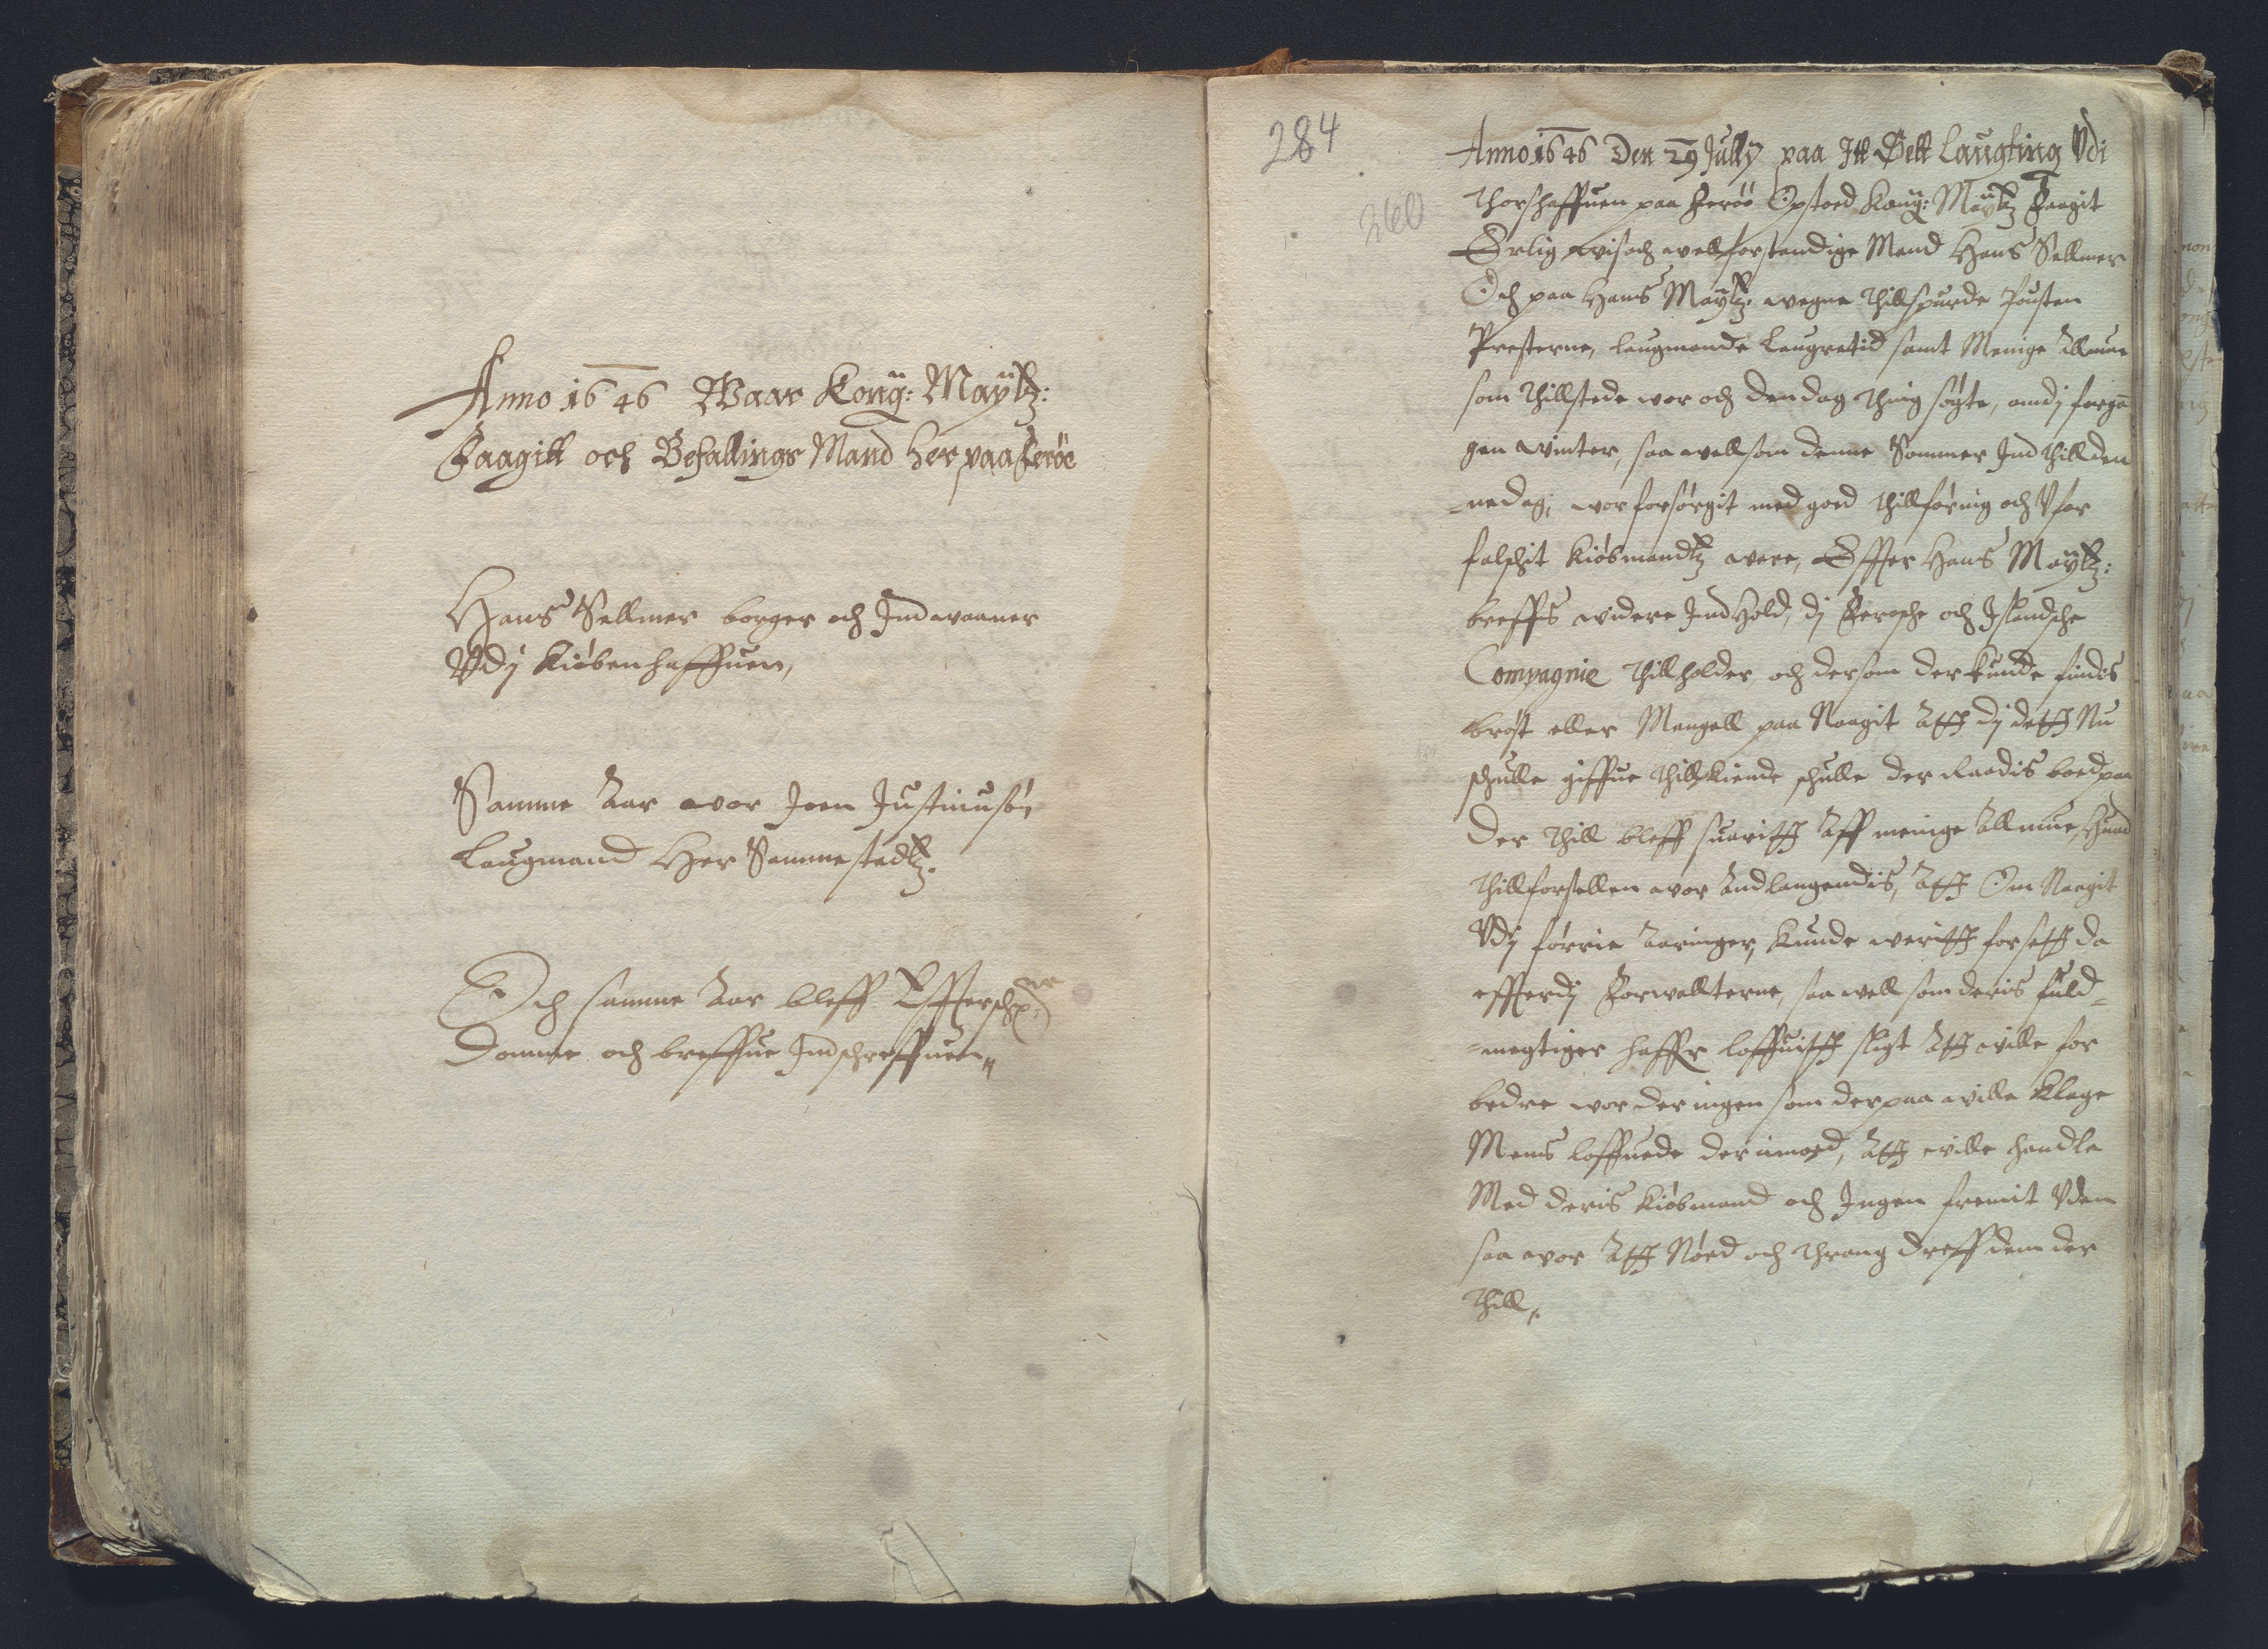 Anno 1646 Waar Kong: Maytz:
Faagitt och Befallings Mand her paa Feröe
Hans Sellmer borger och Indwaaner
Vdj Kiöbenhaffuen,
Samme Aar wor Joen Justinusön
Laugmand Her Sammestedtz.
Och samme Aar bleff Effterschr:ne
Domme och breffue Indschreffuen
284
260
Anno 1646 Den 29 Jullj paa Itt Sett Laugting Vdi
Thorshaffuen paa Feröe Opstoed Kong: Maytz Faagit
Erlig wiis och wellforstandige Mand Hans Sellmer
Och paa Hans Maytz: wegne thillspurde Prousten
Presterne, laugmande Laugretid samt Menige Allmue
som thillstede wor och den dag thing søgte, om dj forgan
gen winter, saa well som denne Sommer Ind thill den
nedag, wor forsørgit med goed thillføring och Vfor
falschit Kiøbmandtz were, Effter Hans Maytz:
breffs widere Indhold, dj Ferosche och Islandsche
Compagnie thillholder, och dersom der kunde findis
brøst eller Mangell paa Naagit Att dj dett Nu
schulle giffue thillkiende schulle der Raadis boed paa
Der thill bleff suaritt Aff meinge Allmue, Huad
thillforsellen wor Andlangendis, Att Om Naagit
Vdj førrie Aaringer, kunde weritt forsett da
effterdj Forwallterne, saa well som deris fuld=
=megtiger haffr loffuitt sligt Att wille for
bedre wor der ingen som derpaa wille klage
Mens loffuede der imoed, Att wille handle
Med deris Kiøbmand och Ingen fremit Vden
saa wor Att Nøed och Thrang dreff dem der
thill.